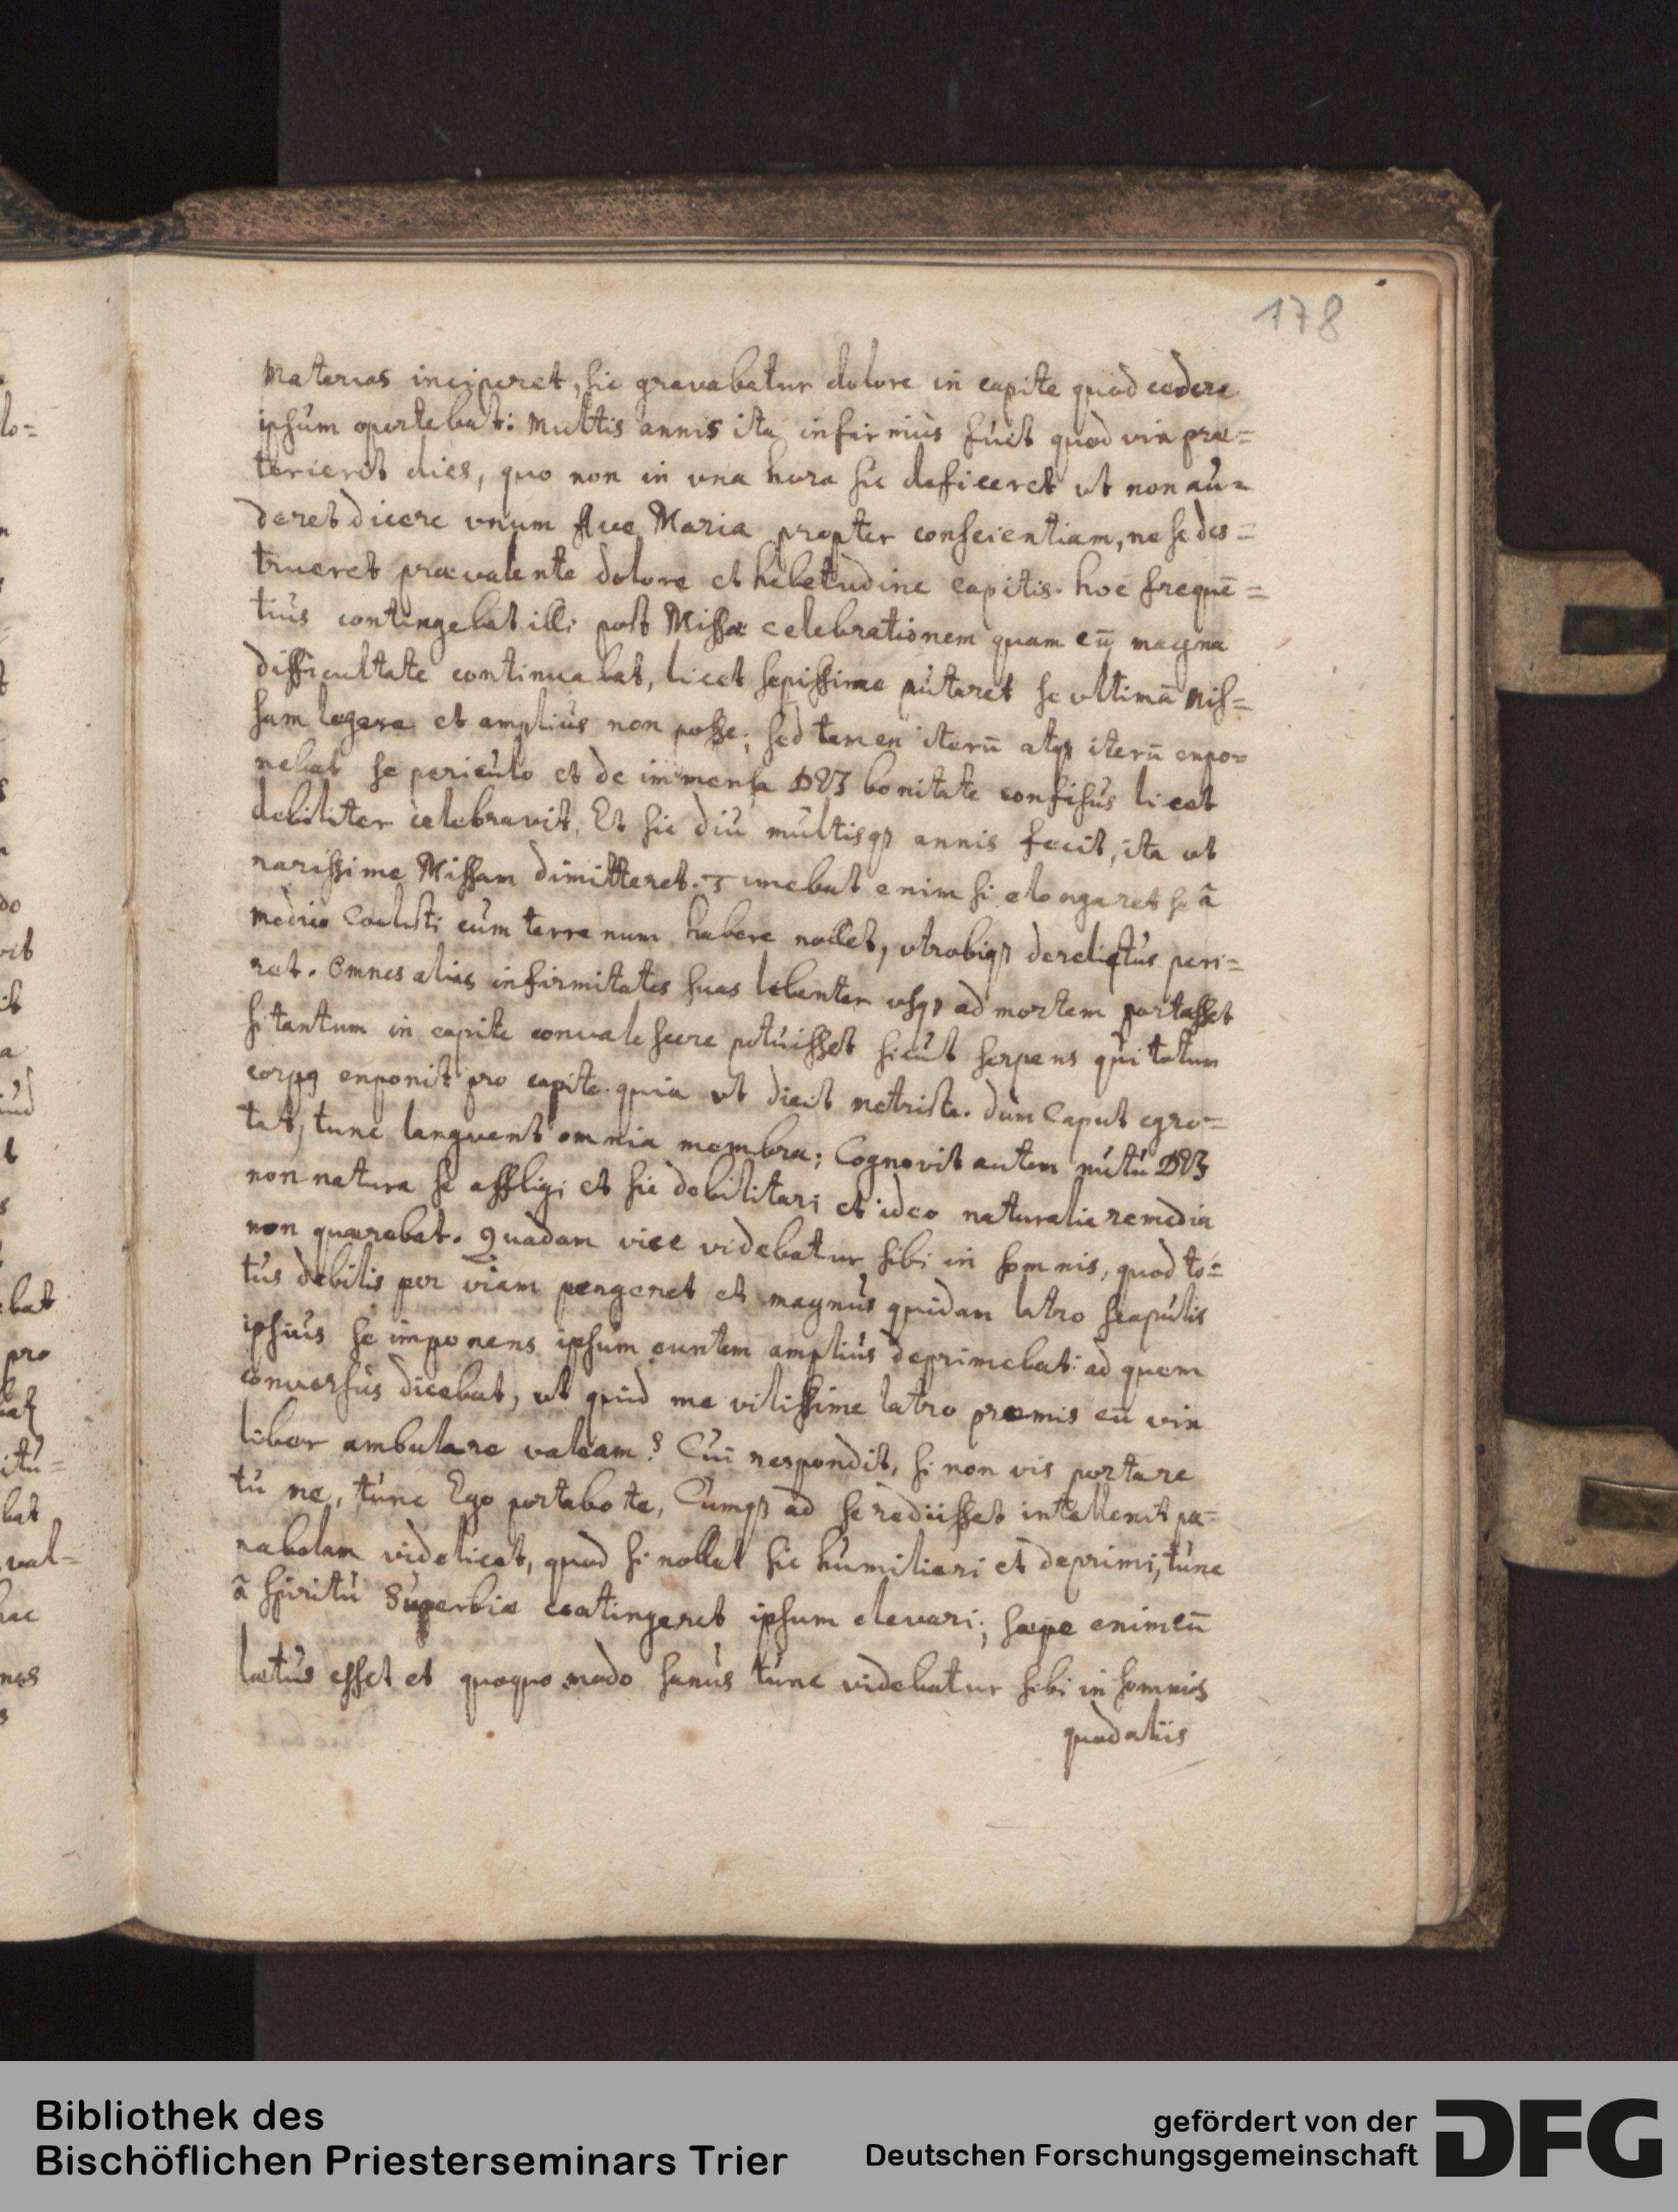 178
Materias inciperet, sic gravabatur dolore in capite quod cedere
ipsum oportebat: Multis annis ita infirmus fuit quod vix præ=
terierit dies, quo non in vna hora sic deficeret vt non au=
deret dicere vnum Ave Maria propter conscientiam, ne se des=
trueret prævalente dolore et hebetudine capitis. hoc frequē=
tius contingebat illi post Missæ celebrationem quam cū magna
difficultate continuabat, licet sepissime putaret se vltimā Mis=
sam legere et amplius non posse, sed tamen iterū atqȝ iterū expo=
nebat se periculo et de immensa DEI bonitate confisus licet
debiliter celebravit, Et sic diu multisqȝ annis fecit, ita vt
rarissime Missam dimitteret. Timebat enim si elongaret se ā
medico Cœlesti cum terrenum habere nollet, vtrobiqȝ derelictus peri=
ret. Omnes alias infirmitates suas libenter vsqȝ ad mortem portasset
si tantum in capite convalescere potuisset sicut serpens qui totum
corpꝯ exponit pro capite. quia vt dicit metrista. dum Caput egro=
tat, tunc languent omnia membra; Cognovit autem nutu DEI
non natura se affligi et sic debilitari et ideo naturalia remedia
non quærebat. Quadam vice videbatur sibi in somnis, quod to=
tus debilis per viam pergeret et magnus quidam latro scapulis
ipsius se imponens ipsum euntem amplius deprimebat: ad quem
conversus dicebat, vt quid me vilissime latro premis cū vix
liber ambulare valeam? Cui respondit, si non vis portare
tu me, tunc Ego portabo te, Cumqȝ ad se rediisset intellexit pa=
rabolam videlicet, quod si nollet sic humiliari et deprimi, tunc
ā spiritu Superbiæ contingeret ipsum elevari; sæpe enim cū
lætus esset et quoquo modo sanus tunc videbatur sibi in somnis
quod aliis
lo=
do
vit
it
a
bat
pro
itu=
bat
val=
hac
nes
Bibliothek des
Bischöflichen Priesterseminars Trier
gefördert von der
Deutschen Forschungsgemeinschaft
DFG